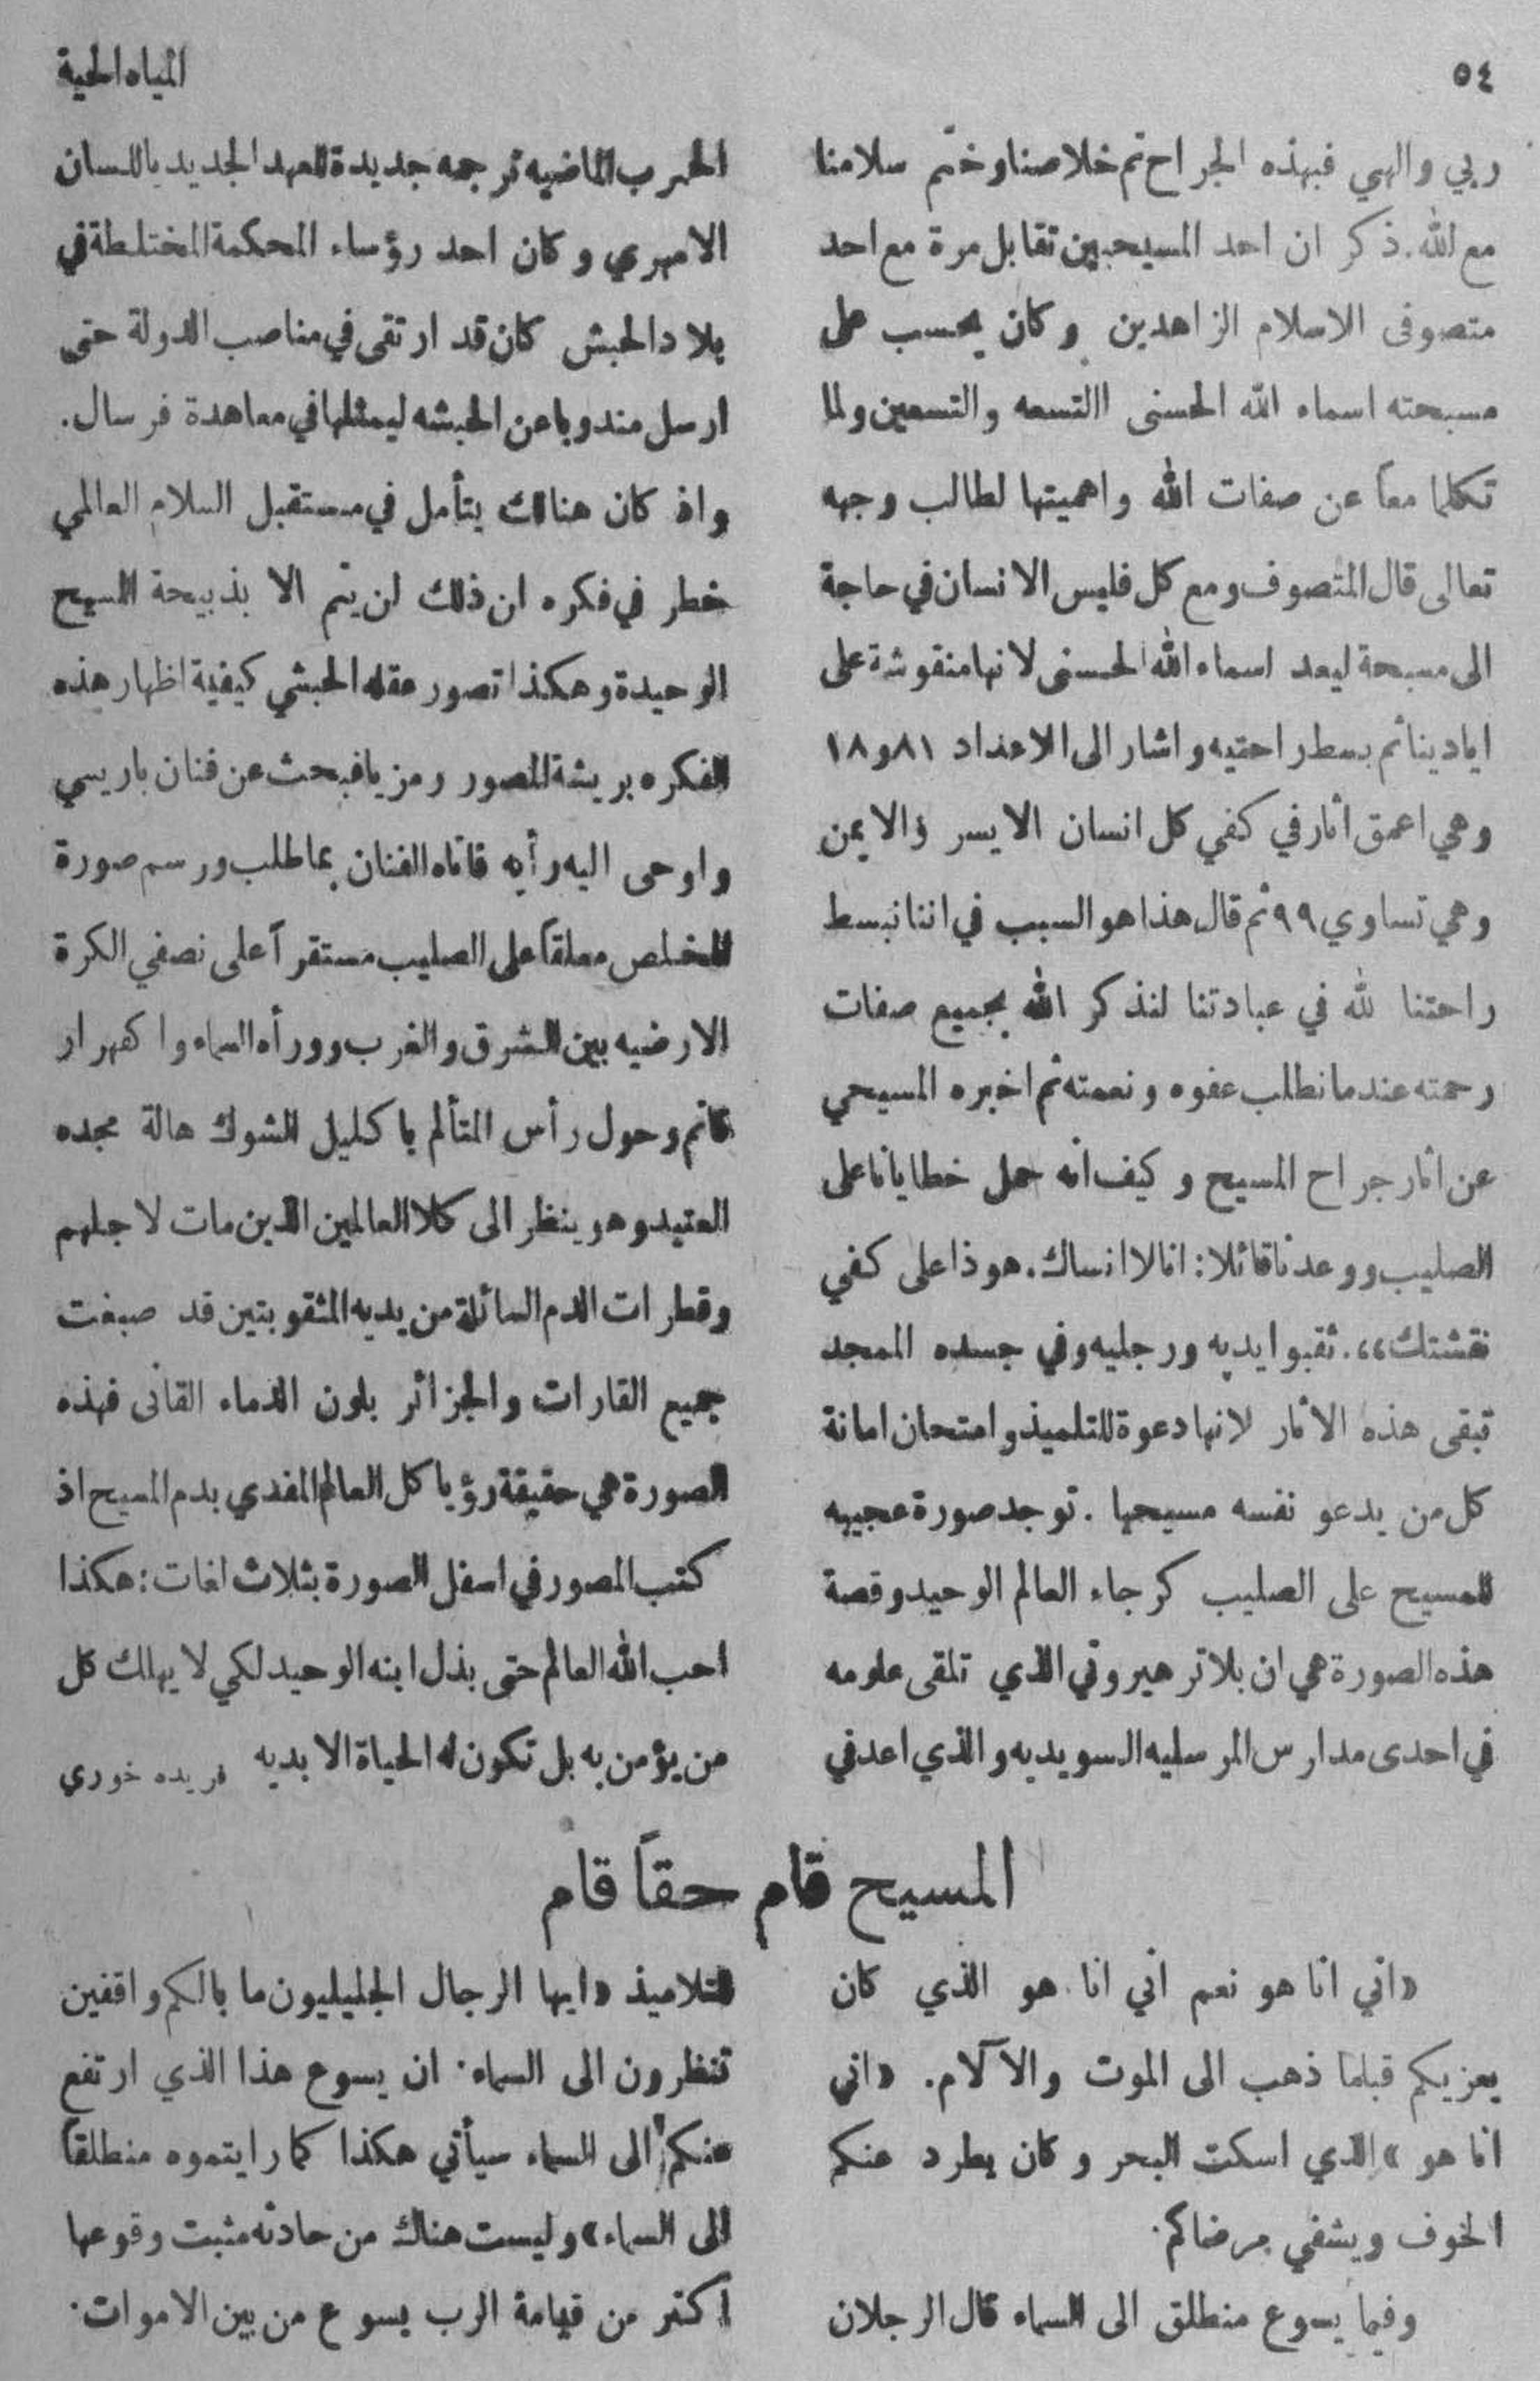 ٥٤
المياه الحية
ربي والهي فبهذه الجراح تم خلاصنا وختم سلامنا
مع الله. ذكر ان احد المسيحيين تقابل مرة مع احد
متصوفى الاسلام الزاهدين وكان يحسب على
مسبحته اسماء الله الحسنى االتسعه والتسعين ولما
تكلما معاً عن صفات الله واهميتها لطالب وجهه
تعالى قال المتصوف ومع كل فليس الانسان في حاجة
الى مسبحة ليعد اسماء الله الحسنى لانها منقوشة على
ايادينا ثم بسط راحتيه واشار الى الاعداد ٨١ و١٨
وهي اعمق اثار في كفي كل انسان الايسر والايمن
وهي تساوي ٩٩ ثم قال هذا هو السبب في اننا نبسط
راحتنا لله في عبادتنا لنذكر الله بجميع صفات
رحمته عندما نطلب عفوه ونعمته ثم اخبره المسيحي
عن اثار جراح المسيح وكيف انه حمل خطايانا على
الصليب ووعدنا قائلا: انا لا انساك. هوذا على كفي
نقشتك،،. ثقبوا يديه ورجليه وفي جسده الممجد
تبقى هذه الاثار لانها دعوة للتلميذ وامتحان امانة
كل من يدعو نفسه مسيحيا. توجد صورة عجيبه
للمسيح على الصليب كرجاء العالم الوحيد وقصة
هذه الصورة هي ان بلاتر هيروتي الذي تلقى علومه
في احدى مدارس المرسليه السويديه والذي اعد في
الحرب الماضيه ترجمه جديدة للعهد الجديد باللسان
الامهري وكان احد رؤساء المحكمة المختلطة في
بلاد الحبش كان قد ارتقى في مناصب الدولة حتى
ارسل مندوبا عن الحبشه ليمثلها في معاهدة فرسال.
واذ كان هنالك يتأمل في مستقبل السلام العالمي
خطر في فكره ان ذلك لن يتم الا بذبيحة المسيح
الوحيدة وهكذا تصور عقله الحبشي كيفية اظهار هذه
الفكره بريشة المصور رمزيا فبحث عن فنان باريسي
واوحى اليه رأيه فاتاه الفنان بما طلب ورسم صورة
المخلص معلقاً على الصليب مستقراً على نصفي الكرة
الارضيه بين الشرق والغرب ووراه السماء واكفهرار
قاتم وحول رأس المتألم باكليل الشوك هالة مجده
العتيد وهو ينظر الى كلا العالمين الذين مات لاجلهم
وقطرات الدم السائلة من يديه المثقوبتين قد صبغت
جميع القارات والجزائر بلون الدماء القانى فهذه
الصورة هي حقيقة رؤيا كل العالم المفدي بدم المسيح اذ
كتب المصور في اسفل الصورة بثلاث لغات: هكذا
احب الله العالم حتى بذل ابنه الوحيد لكي لا يهلك كل
من يؤمن به بل تكون له الحياة الابديه فريده خوري
المسيح قام حقاً قام
«اني انا هو نعم اني انا هو الذي كان
يعزيكم قبلما ذهب الى الموت والآلام. «اني
انا هو» الذي اسكت البحر وكان يطرد عنكم
الخوف ويشفي مرضاكم.
وفيما يسوع منطلق الى السماء قال الرجلان
للتلاميذ «ايها الرجال الجليليون ما بالكم واقفين
تنظرون الى السماء. ان يسوع هذا الذي ارتفع
عنكم الى السماء سيأتي هكذا كما رايتموه منطلقاً
الى السماء» وليست هناك من حادثه مثبت وقوعها
اكثر من قيامة الرب يسوع من بين الاموات.